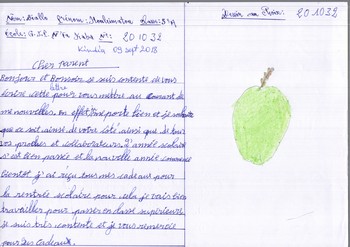 Nom: Diallo Prénom: Classe: 5e A
École: G.S.P. N'Fa Kaba N°: 201032
Kindia 09 sept 2018
Cher parent
Bonjour et Bonsoir je suis contente de vous
écrire cette lettre pour vous mettre au courant de
mes nouvelles. En effet je me porte bien et je souhaite
que ce soit ainsi de votre côté ainsi que de tous
vos proches et collaborateurs. L'année scolaire
s'est bien passée et la nouvelle année commence
bientôt j'ai reçu tous mes cadeaux pour
la rentrée scolaire pour cela je vais bien
travailler pour passer en classe supérieure
je suis très contente et je vous remercie
pour les cadeaux.
Dessin 201032